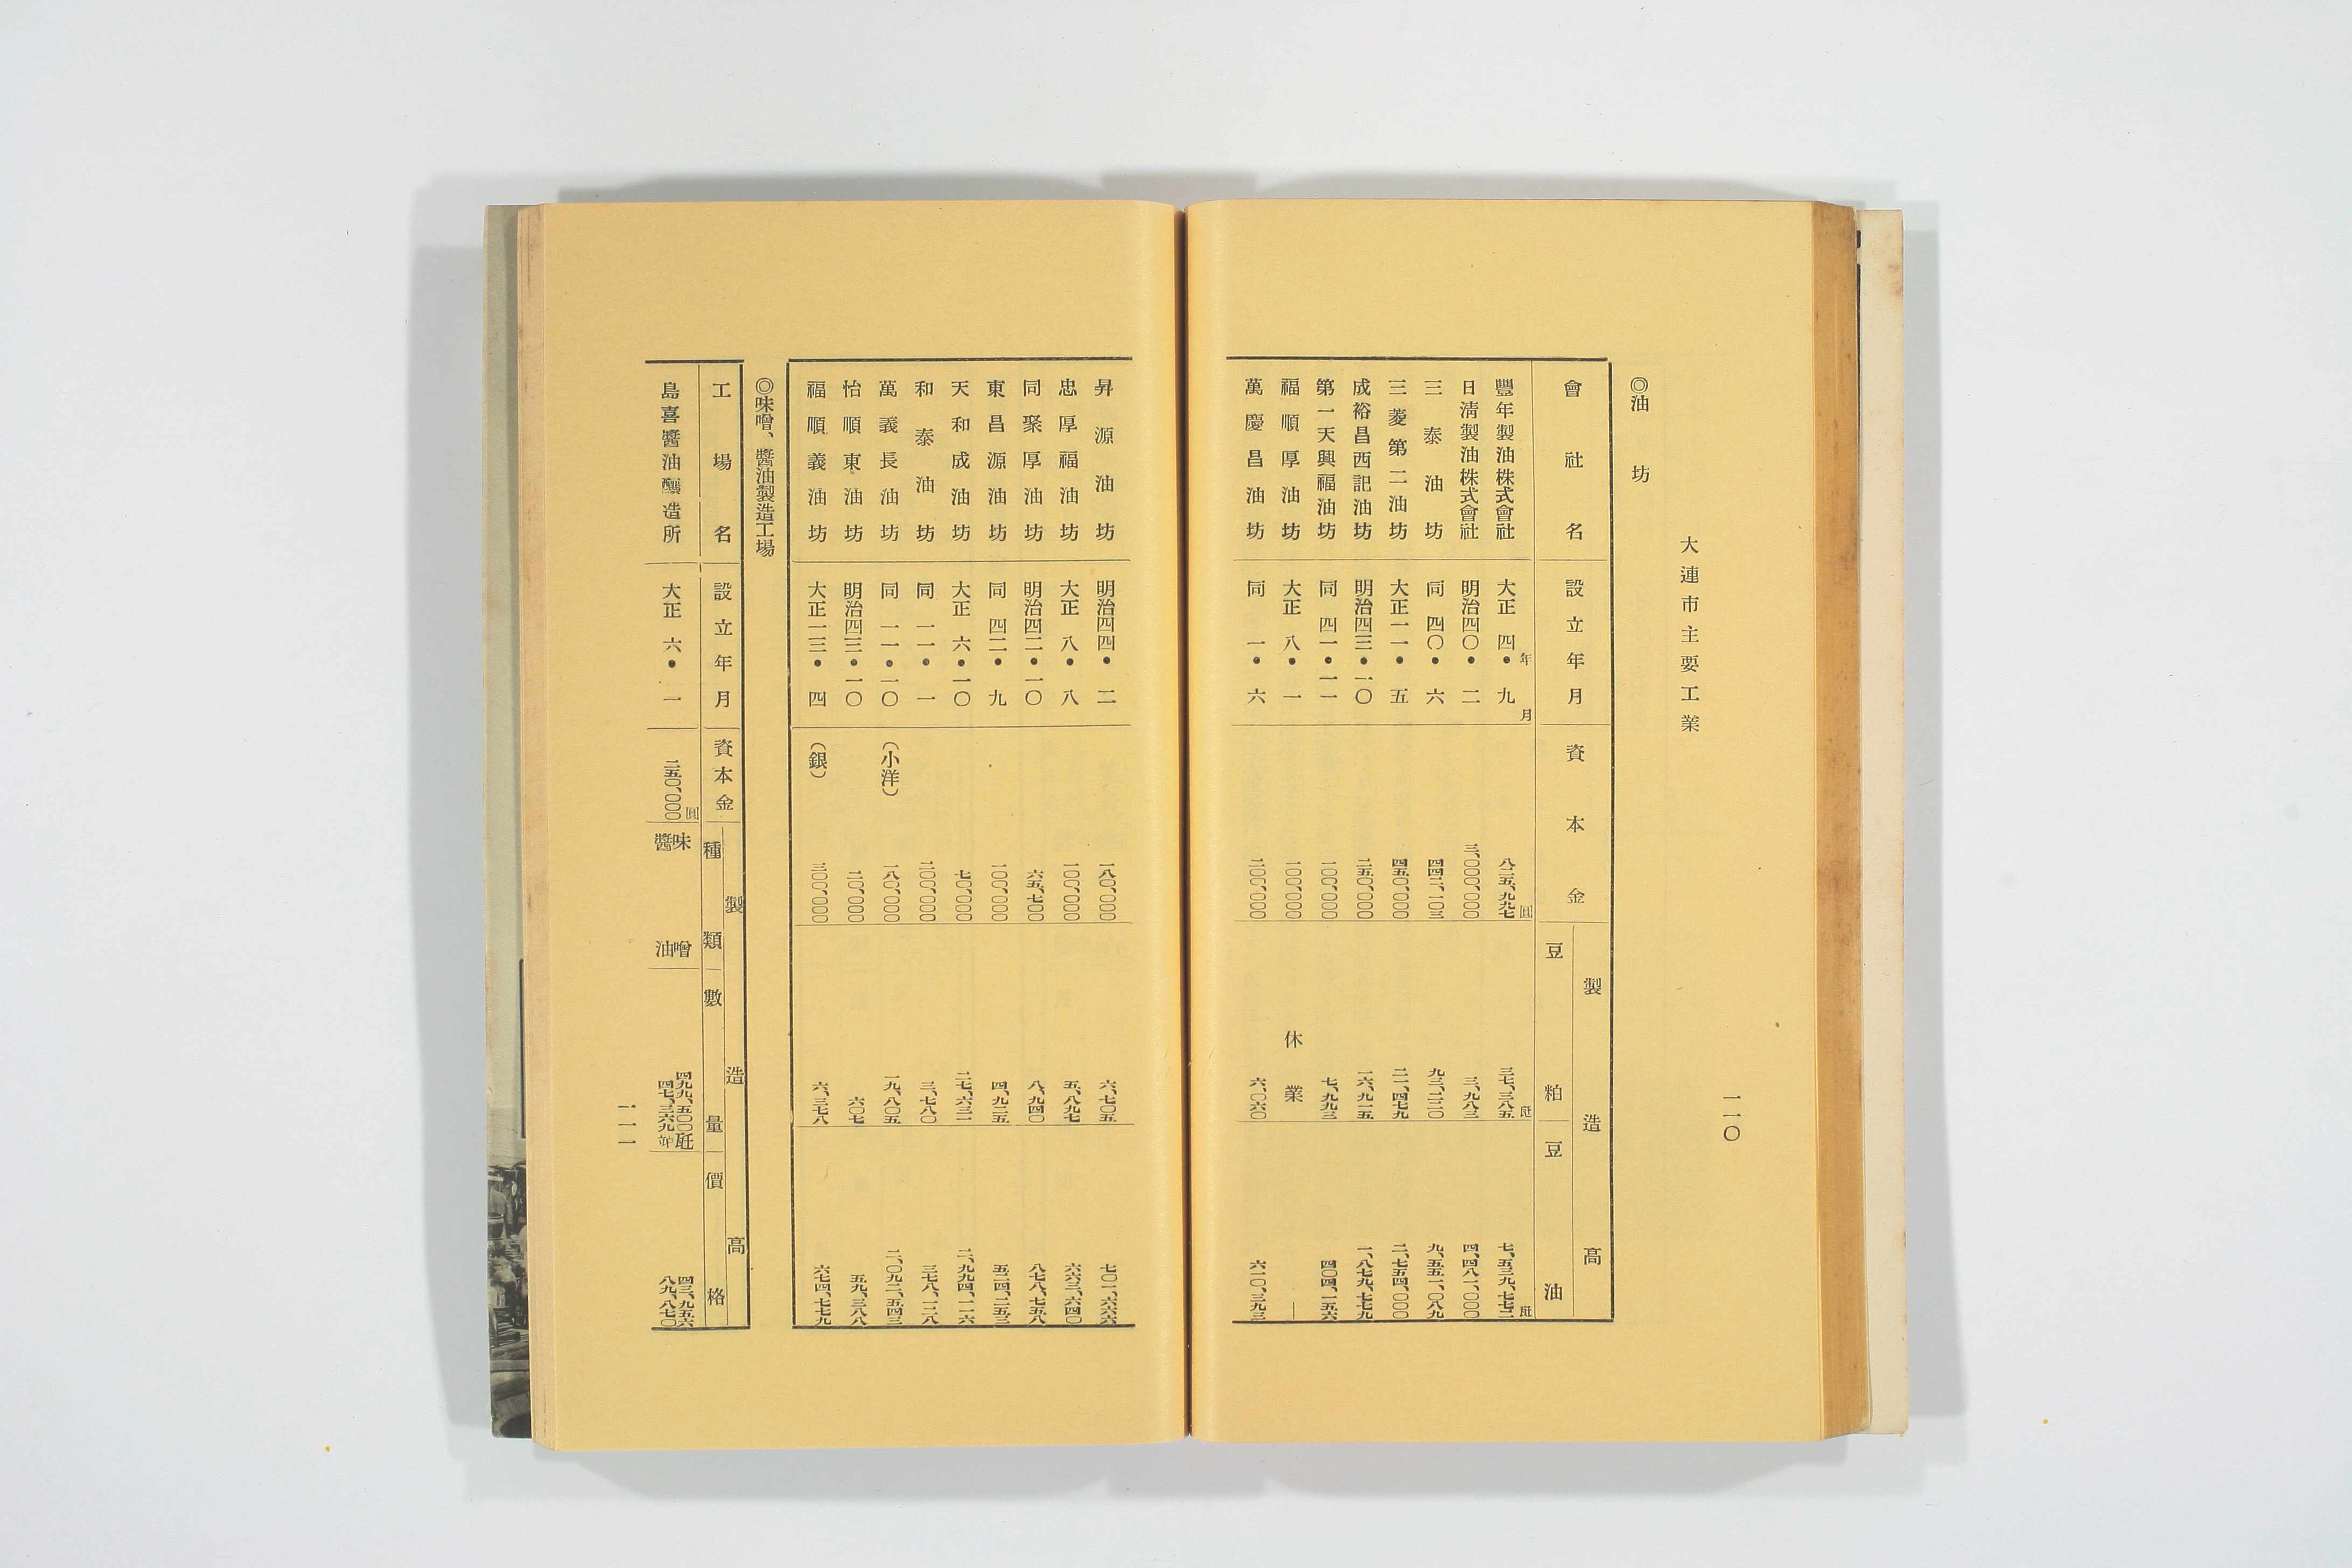 大連市主要工業
一一〇
◎油坊
會社名 設立年月 資本金 製造高 豆粕 豆油
豐年製油株式會社 大正四年・九月 八二五、九九七圓 三七、三八五瓩 七、五三九、七七二瓩
日淸製油株式會社 明治四〇・二 三、〇〇〇、〇〇〇 三、九八三 四、四八一、〇〇〇
三泰油坊 同四〇・六 四四二、一〇三 九三、二二〇 九、五五一、〇八九
三菱第二油坊 大正一一・五 四五〇、〇〇〇 二一、四七九 二、七五四、〇〇〇
成裕昌西記油坊 明治四三・一〇 二五〇、〇〇〇 一六、九一五 一、八七九、七七九
第一天興福油坊 同四一・一一 一〇〇、〇〇〇 七、九九三 四〇四、一五六
福順厚油坊 大正八・一 一〇〇、〇〇〇 休業 ―
萬慶昌油坊 同一・六 二〇〇、〇〇〇 六、〇六〇 六一〇、三九三
昇源油坊 明治四四・二 一八〇、〇〇〇 六、七〇五 七〇一、六六六
忠厚福油坊 大正八・八 一〇〇、〇〇〇 五、八九七 六六三、六四〇
同聚厚油坊 明治四二・一〇 六五、七〇〇 八、九四〇 八七八、七五八
東昌源油坊 同四二・九 一〇〇、〇〇〇 四、九二五 五二四、二五三
天和成油坊 大正六・一〇 七〇、〇〇〇 二七、六三一 二、九九四、一一六
和泰油坊 同一一・一 二〇〇、〇〇〇 三、七八〇 三七八、一二八
萬義長油坊 同一一・一〇 (小洋) 一八〇、〇〇〇 一九、八〇五 二、〇九二、五四三
怡順東油坊 明治四三・一〇 二〇、〇〇〇 六〇七 五九、三八八
福順義油坊 大正一三・四 (銀) 三〇〇、〇〇〇 六、三七八 六七四、七七九
◎味噌、醬油製造工場
工場名 設立年月 資本金 製造高 種類 數量 價格
島喜醬油釀造所 大正六・一 二五〇、〇〇〇圓 味噌 四九九、五〇〇瓩 四三、九五六
醬油 四七、三六九 八九、八七〇
一一一